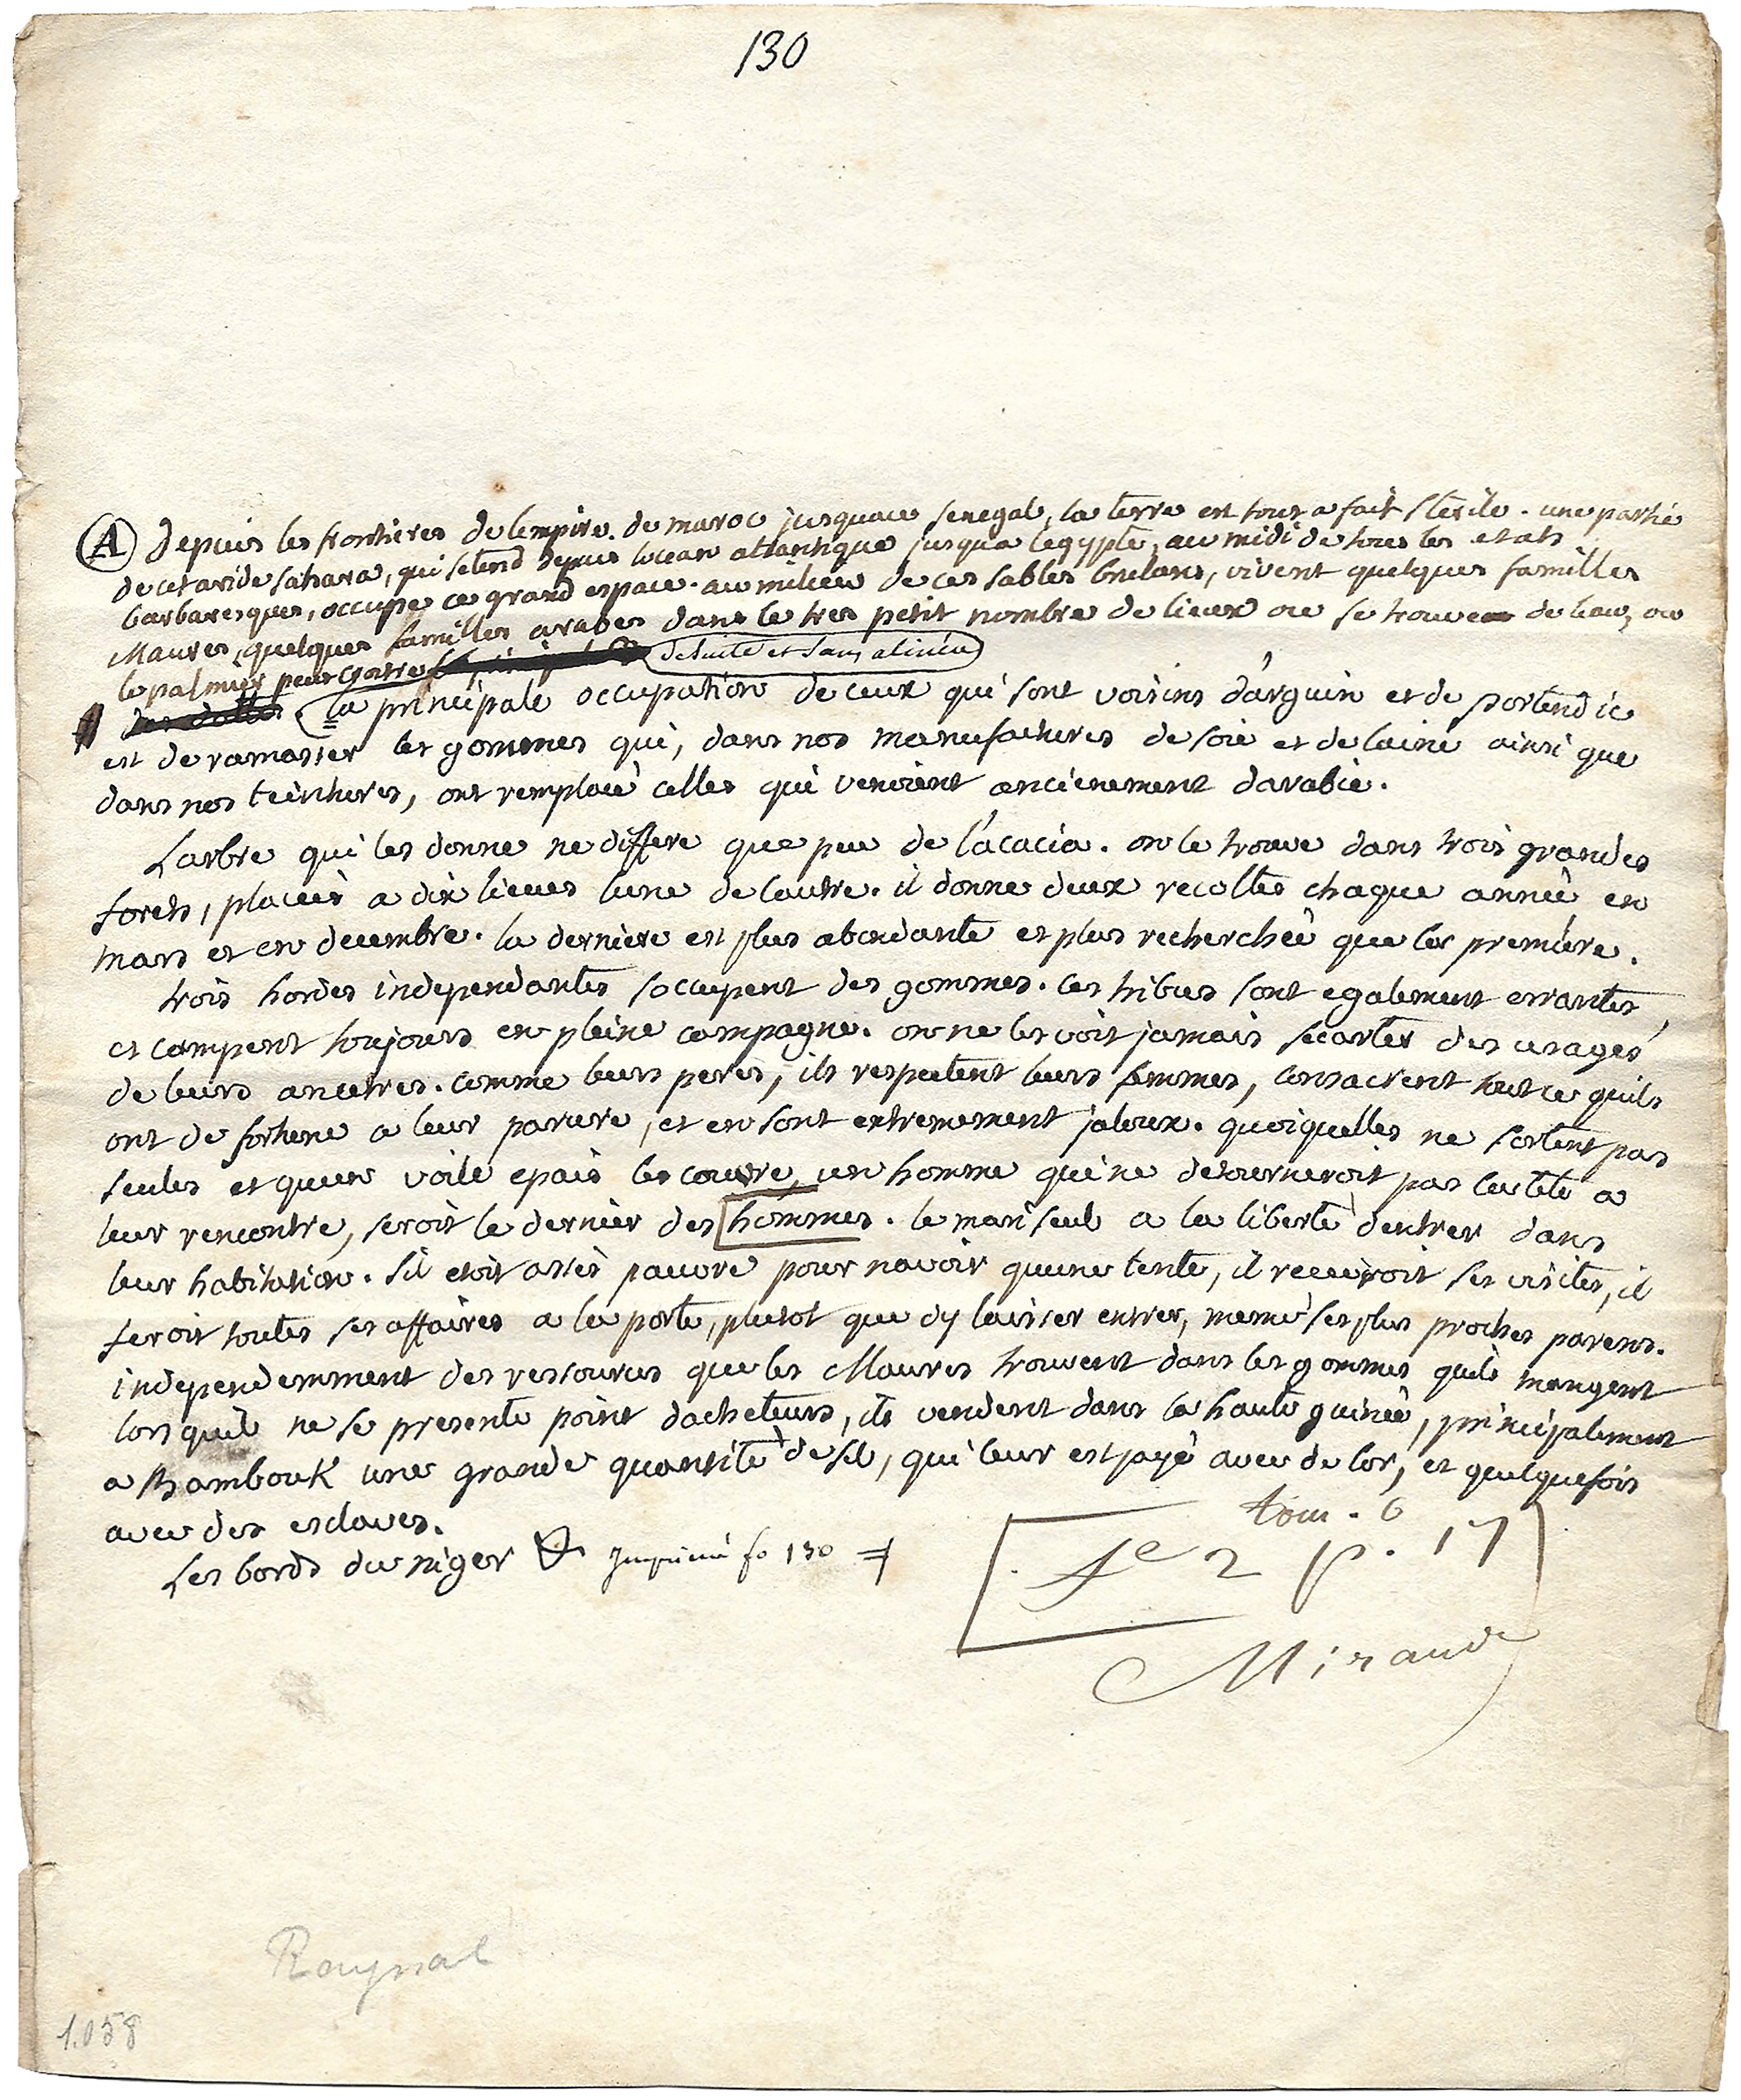 130
A Depuis les frontieres de lempire de maroc jusquau senegal, la terre est tout a fait sterile. une partie
de cet aride sahara, qui setend depuis locean atlantique jusqua legypte, au midi de tous les etats
barbaresques, occupe ce grand espace. au milieu de ces sables brulans, vivent quelques familles
Maures, quelques familles arabes dans le tres petit nombre de lieux ou se trouve de leau, ou
le palmier peut croitre. de suite et sans alinéa
la principale occupation de ceux qui sont voisins d'arguin et de portendic
est de ramasser les gommes qui, dans nos manufactures de soie et de laine ainsi que
dans nos teintures, ont remplacé celles qui venoient ancienement darabie.
Larbre qui les donne ne differe que peu de l'acacia. on le trouve dans trois grandes
forets, placées a dix lieues lune de lautre. il donne deux recoltes chaque année en
mars et en decembre. la derniere est plus abondante et plus recherchée que la premiere.
trois hordes independantes soccupent des gommes. ces tribus sont egalement errantes,
et campent toujours en pleine campagne. on ne les voit jamais secarter des usages
de leurs ancetres. comme leurs peres, ils respectent leurs femmes, consacrent tout ce quils
ont de fortune a leur parure, et en sont extremement jaloux. quoiquelles ne sortent pas
seules et quun voile epais les couvre, un homme qui ne detourneroit pas la tete a
leur rencontre, seroit le dernier des [hommes. le mari seul a la liberté dentrer dans
leur habitation. sil etoit assés pauvre pour navoir quune tente, il recevroit ses visites, il
feroit toutes ses affaires a la porte, plutot que dy laisser entrer, meme ses plus proches parens.
independemment des ressources que les Maures trouvent dans les gommes quils mangent
lorsquil ne se presente point dacheteurs, ils vendent dans la haute guinée, principalement
a Bambouk une grande quantité de sel, qui leur est payé avec de lor, et quelquefois
avec des esclaves.
Les bords du niger & Imprimé fo 130
tom. 6
fe 2 p. 17
Miraud
Raynal
1.058